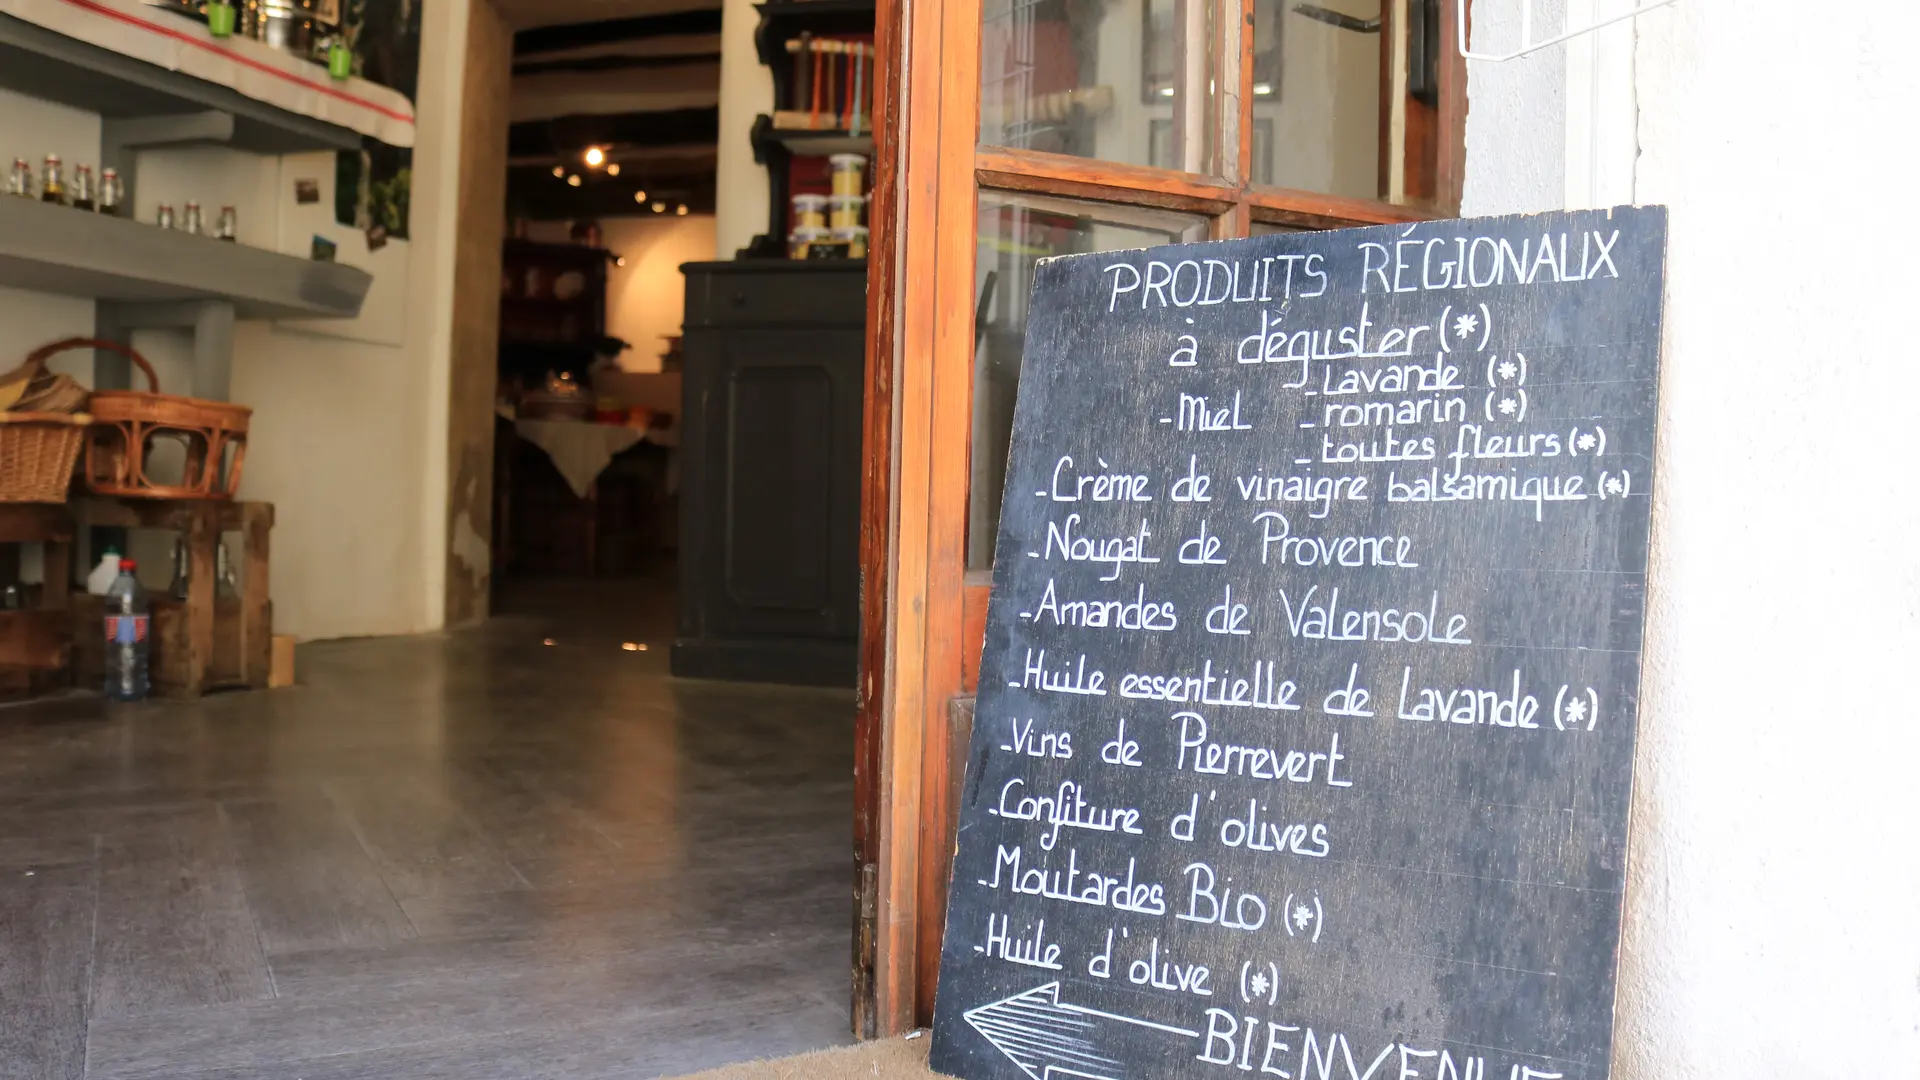 PRODUITS RÉGIONAUX
à déguster (*)
- Lavande (*)
- Miel - romarin (*)
- toutes fleurs (*)
- Crème de vinaigre balsamique (*)
- Nougat de Provence
- Amandes de Valensole
- Huile essentielle de Lavande (*)
- Vins de Pierrevert
- Confiture d'olives
- Moutardes Bio (*)
- Huile d'olive (*)
BIENVENUE